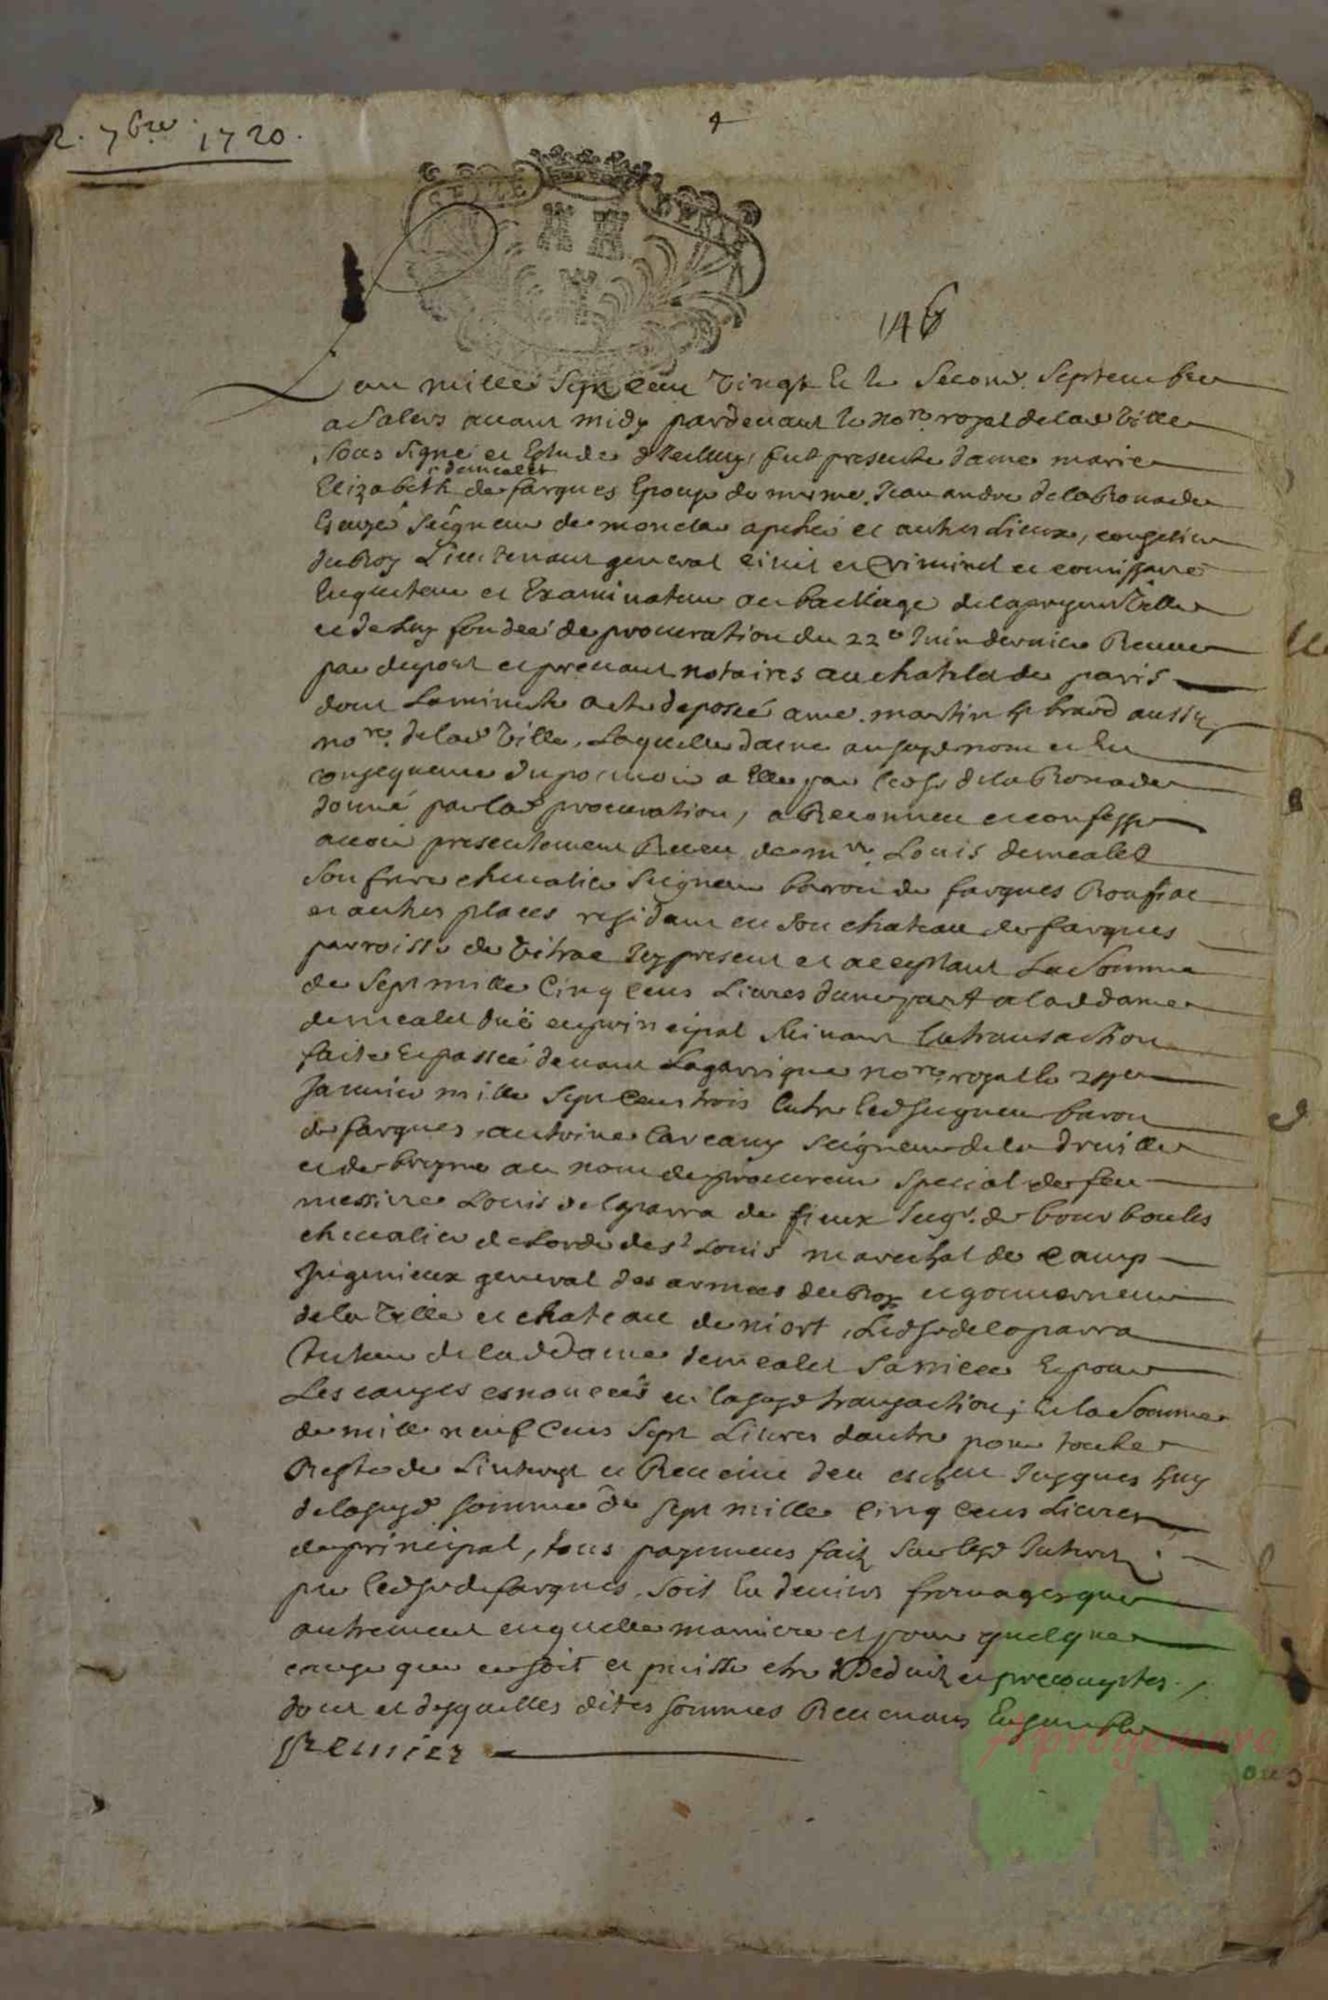 2. 7bre. 1720.
146
Lan mille sept cent vingt et le second septembre
a salers avant midy pardevant le nore. royal de lad ville
sous signé et estude dicelluy, fut presente dame marie
demealet
Elizabeth de fargues Epouse de messre. Jean andre de la Ronade
Escuyé seigneur de moncla apché et autres lieux, conselier
du Roy Lieutenant general civil et criminel et comissaire
Enquesteur et Examinateur au bailliage de la presente ville
et de luy fondeé de procuration du 22e Juin dernier Receue
par dupont et prenant notaires au chatelet de paris
dont la minute a été deposeé a me. martin aussy
nore. de lad ville, Laquelle dame aususd nom et en
consequence du pouvoir a Elle par led sr de la Ronade
donné par lad procuration, a Reconneu et confessé
avoir presentement Receu de mre. Louis demealet
son frere chevalier seigneur baron de fargues Roufiac
et autres places residant en son chateau de fargues
parroisse de vitrac Icy present et acceptant La somme
de sept mille cinq cens Livres dune part a lad dame
demealet duë en principal suivant la transaction
faite et passeé devant Lagarrigue nore. royal le
janvier mille sept cens trois Entre led seigneur baron
de fargues, antoine seigneur de la
et de au nom de procureur special de feu
messire Louis de laparra de fieux seigr. de bourboules
chevalier de lordre de st Louis marechal de camp
Ingenieux general des armées du Roy et gouverneur
de la ville et chateau de niort, Led sr de laparra
tuteur de lad dame demealet sa niece Et pour
Les causes enonceés en la susd transaction; et la somme
de mille neuf cens sept Livres dautre pour toute
Reste de Linterest et Revenu deu et escheu jusques huy
de la susd somme de sept mille cinq cens Livres
de principal, tous payemens fait sur lesd Interest
par led sr de fargues, soit en deniers fromages que
autrement en quelle maniere et pour quelque
cause que ce soit et puisse etre Deduit et precomptes,
dont et desquelles dites sommes Revenans Ensemble
premier
Aprogemere